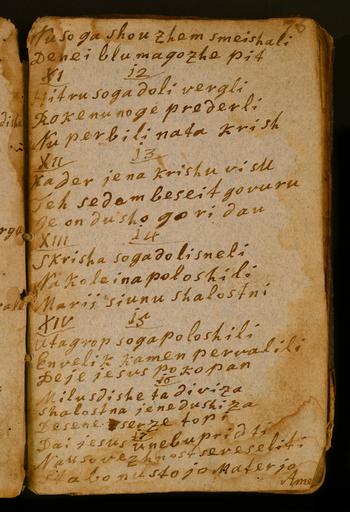 Nusoga shou zhem smeishali
Denei blumagozhe pit
XI 12
Hitru soga doli vergli
Rokenunoge prederli
Nu perbili nata krish
XII 13
Kader jena krishu visu
Teh sedem beseit govuru
Je on dusho gori dau
XIII 14
Skrisha sogadolisneli
Na koleina poloshili
Marii siunu shalostni
XIV 15
Utagrop soga poloshili
Envelik kamen pervalili
Deje jesus pokopan
16
Milusdishe ta diviza
shalostna jene dushiza
Desene serze topi
17
Dai jesus unebu priditi
Nasso vezhnost se veseliti
Sta bonustojo Materjo
Ame